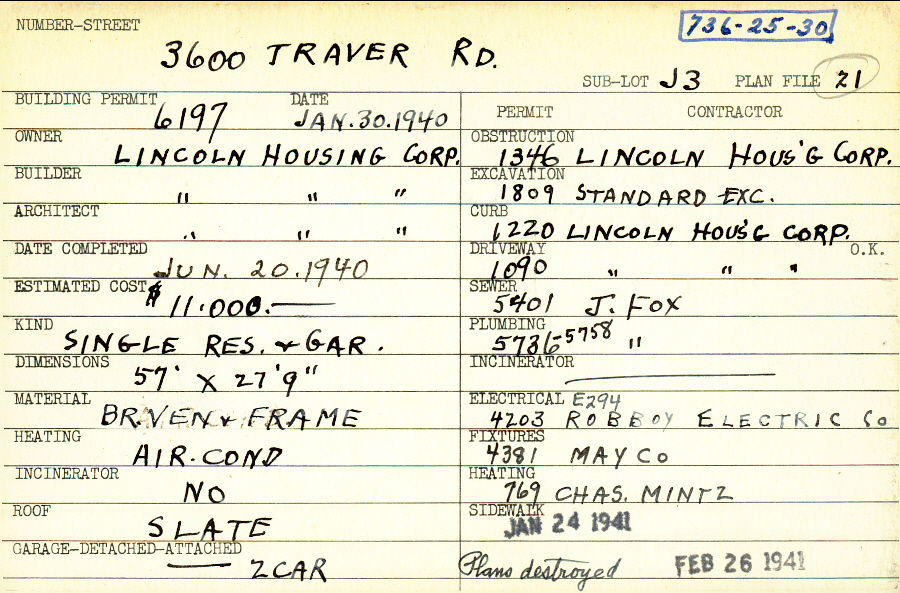 NUMBER-STREET
736-25-30
3600 TRAVER RD.
SUB-LOT J3 PLAN FILE 21
BUILDING PERMIT 6197 DATE JAN.30.1940
OWNER LINCOLN HOUSING CORP.
BUILDER " " "
ARCHITECT " " "
DATE COMPLETED JUN. 20.1940
ESTIMATED COST $ 11.000.—
KIND SINGLE RES. & GAR.
DIMENSIONS 57' X 27'9"
MATERIAL BR.VEN & FRAME
HEATING AIR.COND
INCINERATOR NO
ROOF SLATE
GARAGE-DETACHED-ATTACHED 2CAR
PERMIT CONTRACTOR
OBSTRUCTION 1346 LINCOLN HOUS'G CORP.
EXCAVATION 1809 STANDARD EXC.
CURB 1220 LINCOLN HOUS'G CORP.
DRIVEWAY 1090 " " " O.K.
SEWER 5401 J. FOX
PLUMBING 5736-5758 "
INCINERATOR —
ELECTRICAL E294
4203 ROBBOY ELECTRIC Co
FIXTURES 4381 MAY Co
HEATING 769 CHAS. MINTZ
SIDEWALK JAN 24 1941
Plans destroyed FEB 26 1941